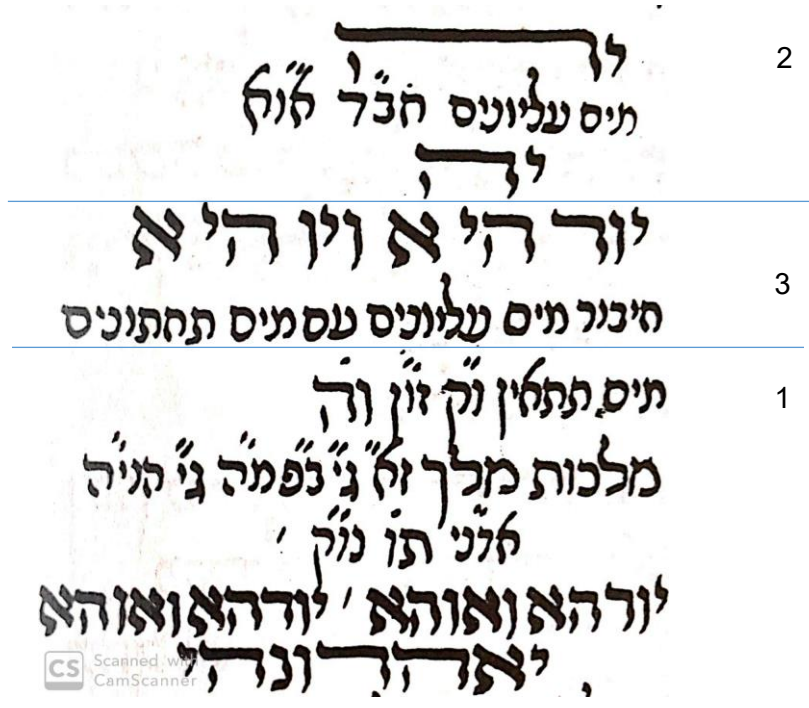 יה
2
מים עליונים חב״ד או״א
יה
יוד הי א ויו הי א
3
חיבור מים עליונים עם מים תחתונים
מים תתאין ו״ק זו״ן ו״ה
1
מלכות מלך ז״א ג״י ג״י הני״ה
אדני נו״ק
יוד הא ואו הא ׳ יוד הא ואו הא
יאהדונהי
CS Scanned with
CamScanner